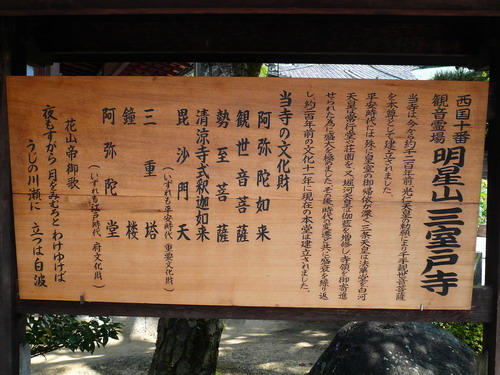 西国十番
観音霊場
明星山三室戸寺
当寺は、今から約千二百年前光仁天皇の勅願により千手観世音菩薩
を本尊として建立されました。
平安時代には、殊に皇室の御帰依が深く、三条天皇は法華堂を白河
天皇は常行堂と荘園を、又堀河天皇は伽藍を増修し寺領を御寄進
せられた為に盛大を極めました。その後時代の変遷と共に盛衰を繰り返
し、約二百年前の文化十一年に現在の本堂は建立されました。
当寺の文化財
阿弥陀如来
観世音菩薩
勢至菩薩
清涼寺式釈迦如来
毘沙門天
(いずれも平安時代 重要文化財)
三重塔
鐘楼
阿弥陀堂
(いずれも江戸時代 府文化財)
花山帝御歌
夜もすがら 月をみむろと わけゆけば
うじの川瀬に 立つは白波